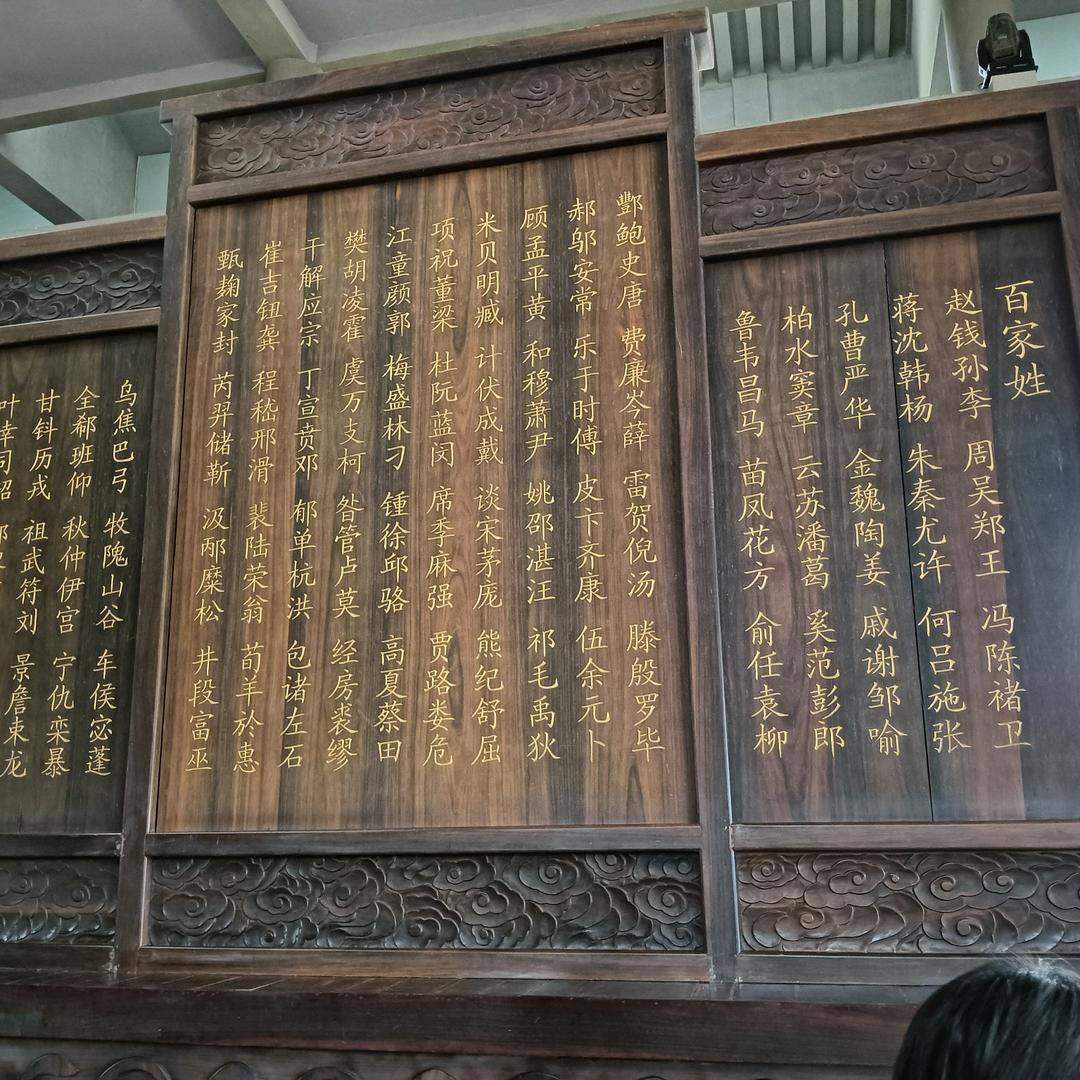 百家姓
赵钱孙李 周吴郑王 冯陈褚卫
蒋沈韩杨 朱秦尤许 何吕施张
孔曹严华 金魏陶姜 戚谢邹喻
柏水窦章 云苏潘葛 奚范彭郎
鲁韦昌马 苗凤花方 俞任袁柳
酆鲍史唐 费廉岑薛 雷贺倪汤 滕殷罗毕
郝邬安常 乐于时傅 皮卞齐康 伍余元卜
顾孟平黄 和穆萧尹 姚邵湛汪 祁毛禹狄
米贝明臧 计伏成戴 谈宋茅庞 熊纪舒屈
项祝董梁 杜阮蓝闵 席季麻强 贾路娄危
江童颜郭 梅盛林刁 锺徐邱骆 高夏蔡田
樊胡凌霍 虞万支柯 昝管卢莫 经房裘缪
干解应宗 丁宣贲邓 郁单杭洪 包诸左石
崔吉钮龚 程嵇邢滑 裴陆荣翁 荀羊於惠
甄麹家封 芮羿储靳 汲邴糜松 井段富巫
乌焦巴弓 牧隗山谷 车侯宓蓬
全郗班仰 秋仲伊宫 宁仇栾暴
甘钭历戎 祖武符刘 景詹束龙
叶幸司韶